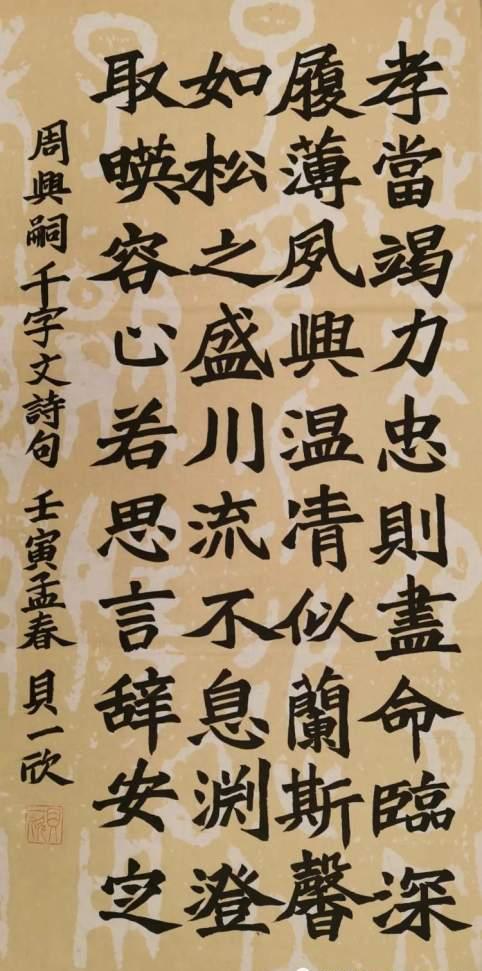 孝當竭力忠則盡命臨深
履薄夙興温凊似蘭斯馨
如松之盛川流不息渊澄
取暎容止若思言辞安定
周興嗣千字文詩句 壬寅孟春 貝一欣